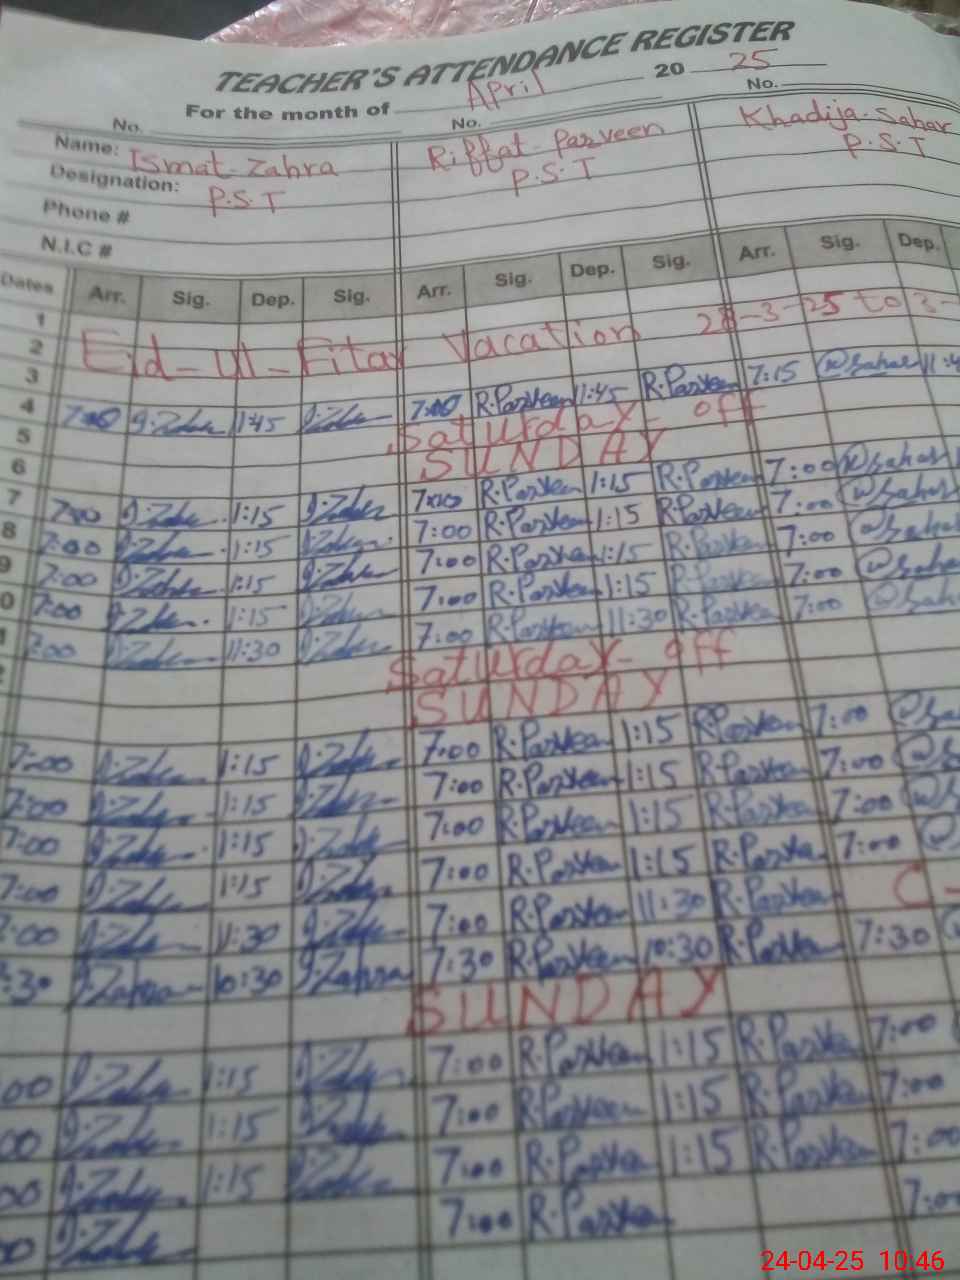 TEACHER'S ATTENDANCE REGISTER
For the month of April 20 25
No. No. No.
Name: Ismat-Zahra Riffat-Parveen Khadija-Sahar
Designation: P.S.T P.S.T P.S.T
Phone #
N.I.C #
Dates Arr. Sig. Dep. Sig. Arr. Sig. Dep. Sig. Arr. Sig. Dep.
1
2 Eid-ul-Fitar Vacation 28-3-25 to 3-
3
4 7:00 I.Zahra 1:45 I.Zahra 7:00 R.Parveen 11:45 R.Parveen 7:15 @sahar 11:4
5 Saturday-off
6 SUNDAY
7 7:00 I.Zahra 1:15 I.Zahra 7:00 R.Parveen 1:15 R.Parveen 7:00 @sahar
8 7:00 I.Zahra 1:15 I.Zahra 7:00 R.Parveen 1:15 R.Parveen 7:00 @sahar
9 7:00 I.Zahra 1:15 I.Zahra 7:00 R.Parveen 1:15 R.Parveen 7:00 @sahar
0 7:00 I.Zahra 1:15 I.Zahra 7:00 R.Parveen 1:15 R.Parveen 7:00 @sahar
1 7:00 I.Zahra 11:30 I.Zahra 7:00 R.Parveen 11:30 R.Parveen 7:00 @sahar
2 Saturday-off
SUNDAY
7:00 I.Zahra 1:15 I.Zahra 7:00 R.Parveen 1:15 R.Parveen 7:00
7:00 I.Zahra 1:15 I.Zahra 7:00 R.Parveen 1:15 R.Parveen 7:00
7:00 I.Zahra 1:15 I.Zahra 7:00 R.Parveen 1:15 R.Parveen 7:00
7:00 I.Zahra 1:15 I.Zahra 7:00 R.Parveen 1:15 R.Parveen 7:00
:00 I.Zahra 11:30 I.Zahra 7:00 R.Parveen 11:30 R.Parveen C-
:30 I.Zahra 10:30 I.Zahra 7:30 R.Parveen 10:30 R.Parveen 7:30
SUNDAY
00 I.Zahra 1:15 I.Zahra 7:00 R.Parveen 1:15 R.Parveen 7:00
00 I.Zahra 1:15 I.Zahra 7:00 R.Parveen 1:15 R.Parveen 7:00
00 I.Zahra 1:15 I.Zahra 7:00 R.Parveen 1:15 R.Parveen 7:00
00 I.Zahra 7:00 R.Parveen 7:0
24-04-25 10:46